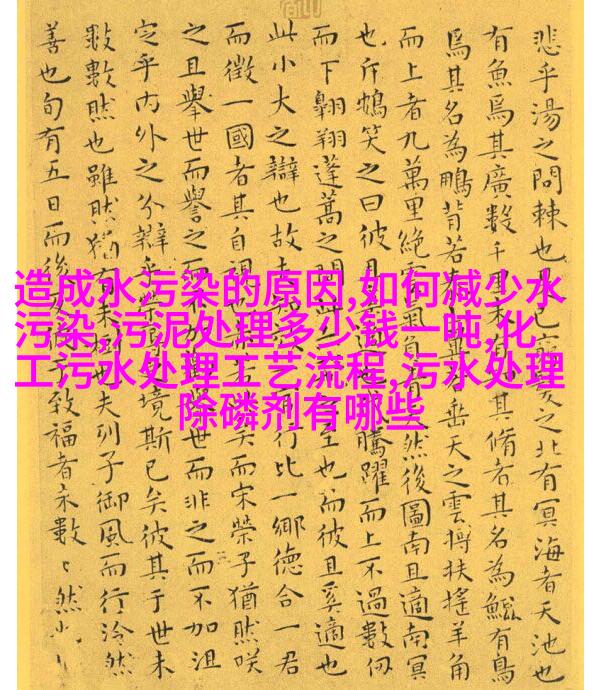 造成水污染的原因,如何减少水
污染,污泥处理多少钱一吨,化
工污水处理工艺流程,污水处理
除磷剂有哪些
悲乎湯之問棘也
之北有冥海者天池也
有魚焉其廣數千里
其脩者其名為鯤有鳥
焉其名為鵬背若
垂天之雲摶扶搖羊角
而上者九萬里絕雲
然後圖南且適南冥
也斥鴳笑之曰彼
騰躍而上不過數仞
而下翱翔蓬蒿之間
至也而彼且奚適也
此小大之辯也故
行比一鄉德合一君
而徵一國者其自視
矣而宋榮子猶然咲
之且舉世而譽之而
世而非之而不加沮
定乎內外之分辯乎
境斯已矣彼其于世未
數數然也雖然猶有未
夫列子御風而行泠然
善也旬有五日而後
致福者未數〻然也